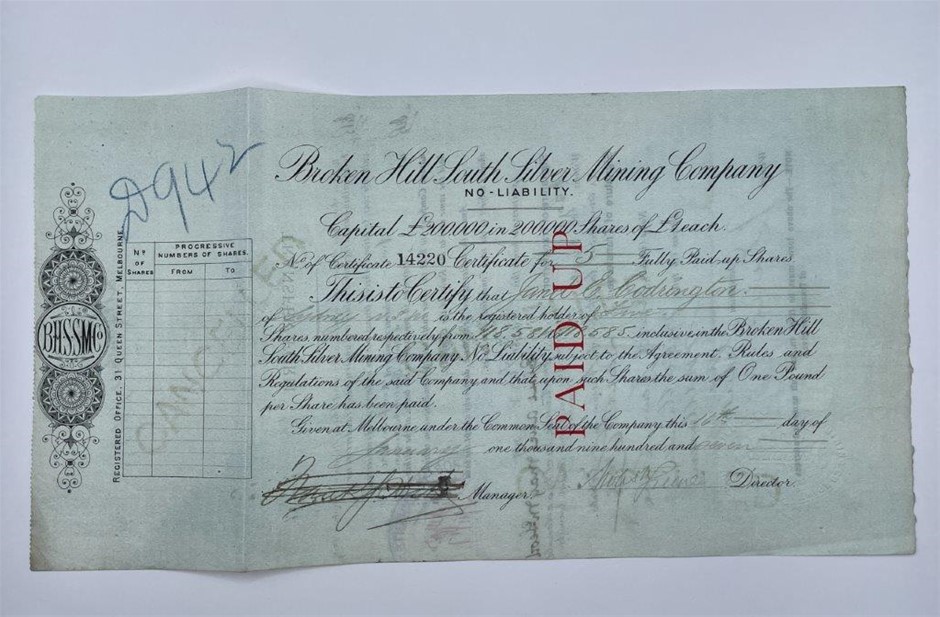 D942
Broken Hill South Silver Mining Company
NO-LIABILITY.
Capital £200000 in 200000 Shares of £1 each.
No. of Certificate 14220 Certificate for 5 Fully Paid-up Shares
This is to Certify that James C. Codrington
of Sydney is the registered holder of Five
Shares numbered respectively from 118.581 to 118.585 inclusive in the Broken Hill
South Silver Mining Company No Liability, subject to the Agreement, Rules and
Regulations of the said Company and that upon such Shares the sum of One Pound
per Share has been paid.
Given at Melbourne under the Common Seal of the Company this 16th day of
January one thousand nine hundred and seven
Manager.
Director.
PAID UP
CANCELLED
B.H.S.S.M.Co
REGISTERED OFFICE, 31 QUEEN STREET, MELBOURNE.
No. OF SHARES
PROGRESSIVE NUMBERS OF SHARES.
FROM
TO